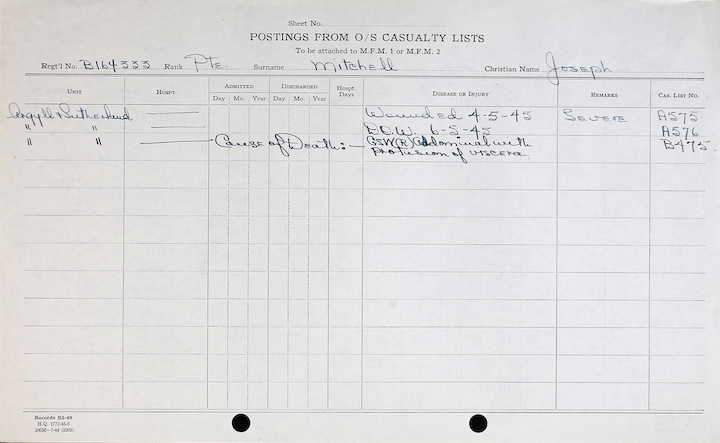 Sheet No.
POSTINGS FROM O/S CASUALTY LISTS
To be attached to M.F.M. 1 or M.F.M. 2
Regt'l No. B164333 Rank Pte. Surname Mitchell Christian Name Joseph
UNIT HOSPT. ADMITTED DISCHARGED Hospt. Days DISEASE OR INJURY REMARKS CAS. LIST NO.
Day Mo. Year Day Mo. Year
Argyll & Sutherland Wounded 4-5-45 Severe A575
" " D.O.W. 6-5-45 A576
" " Cause of Death:- GSW(R) Abdominal with B475
protusion of viscera
Records RA-49
H.Q.